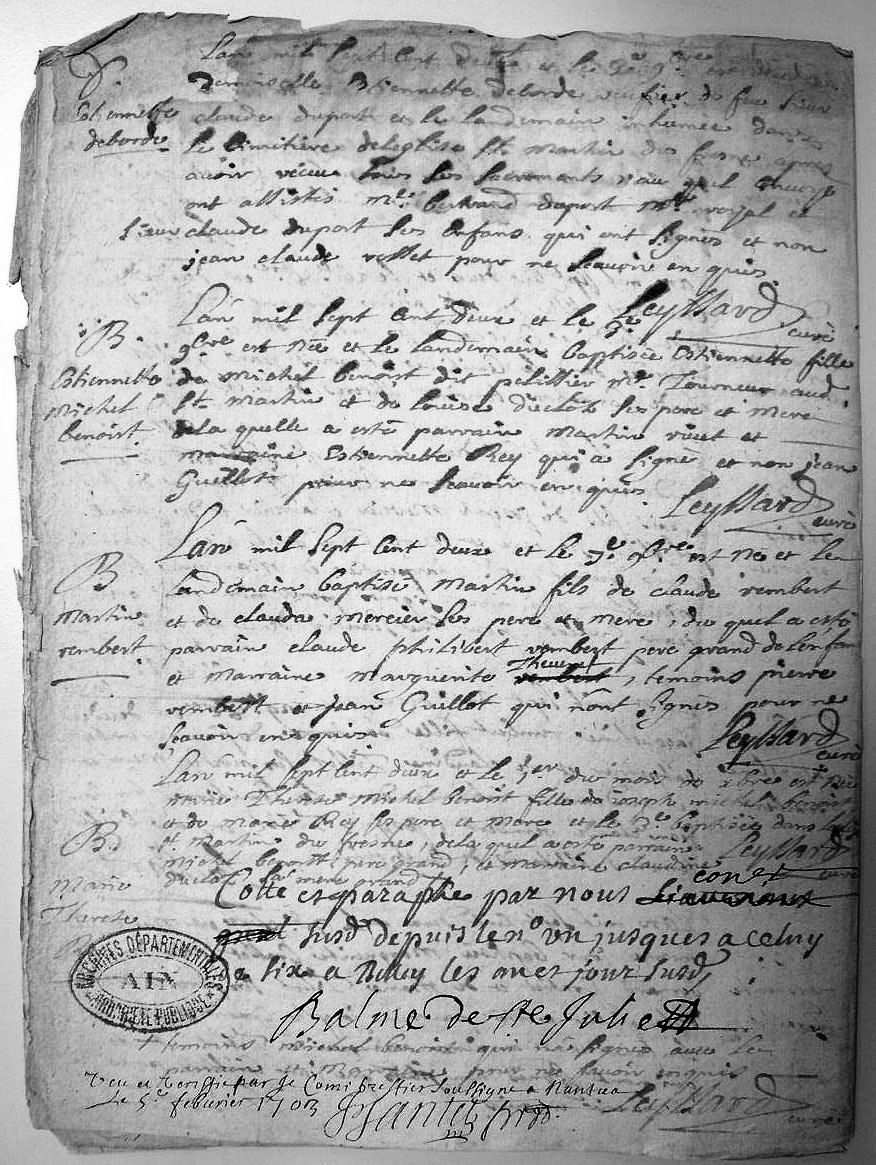 Lan mil sept cent deux et le 3e 9bre est
demoiselle Estiennette deborde de feu sieur
Estiennette
deborde
claude duport et le landemain inhumée dans
le cimitière de leglise St martin du fresne apres
avoir receue tous les sacremants
ont assistés bertrand duport
sieur claude duport ses enfans qui ont signés et non
jean claude pour ne scavoir enquis
Leyssard curé
B.
Estiennette
michel
benoist
Lan mil sept cent deux et le
9bre est née et le landemain baptisée Estiennette fille
de michel benoist dit pelissier Me Tourneur aud
St martin et de louise duclot ses pere et mere
de la quelle a esté parrain martin et
marraine Estiennette Rey qui a signé et non jean
Guillot pour ne scavoir enquis
Leyssard curé
B
Martin
vembert
Lan mil sept cent deux et le 7e 9bre est né et le
landemain baptisé martin fils de claude vembert
et de clauda mercier ses pere et mere, du quel a esté
parrain claude philibert vembert pere grand de lenfan
et marraine marguerite Thevenet vembert, temoins pierre
vembert et jean Guillot qui nont signés pour ne
scavoir enquis
Leyssard curé
B
Marie
Therese
Lan mil sept cent deux et le 1er du mois de xbre est née
marie Therese michel benoist fille de joseph michel benoist
et de marie Rey ses pere et mere et le 3e baptisée dans
St martin du fresne, de laquel a esté parrain
michel benoist pere grand, et marraine claudine
duclot sa mere grand +
Leyssard curé
Cotte et paraphe par nous coner
susd depuis le no un jusques a celuy
de six a les an et jour susd
Balme de Ste Julie
ARCHIVES DÉPARTEMENTALES
AIN
PROPRIÉTÉ PUBLIQUE
+ temoins michel benoist qui na signés avec le
parrain et marraine pour ne scavoir enquis
Leyssard curé
Veu et verifié par le Comis greffier soussigné a Nantua
le 5e febvrier 1703